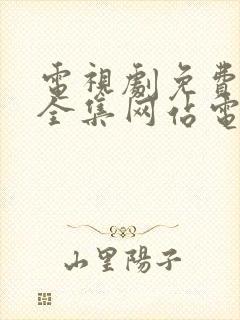 電視劇免費
全集网佔電
山里陽子